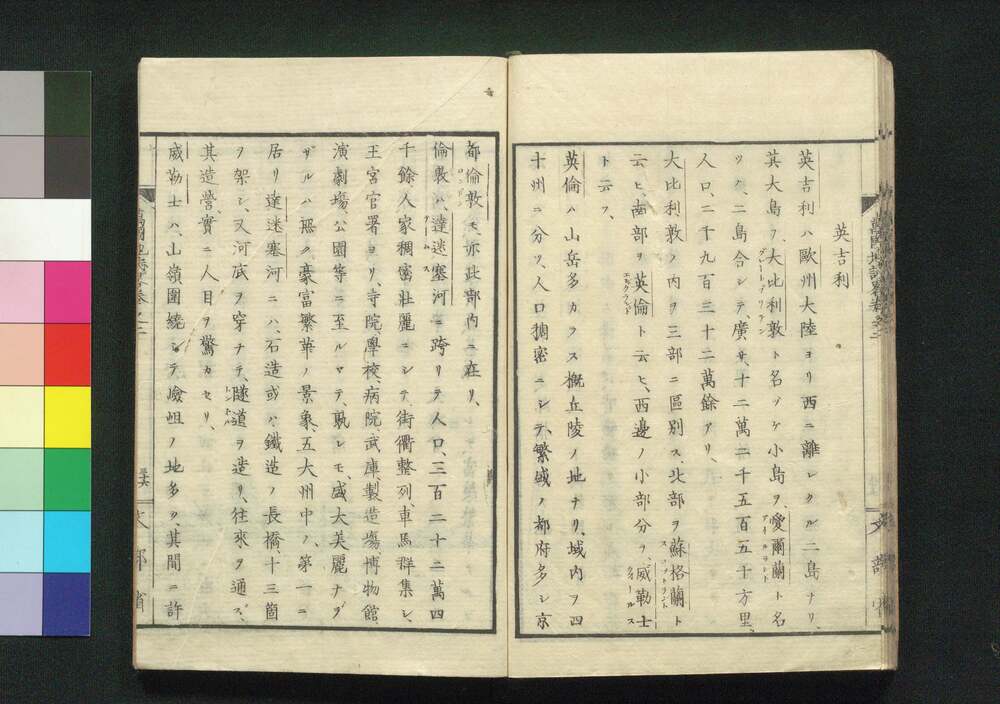 英吉利
英吉利ハ歐州大陸ヨリ西ニ離レタル二島ナリ、
其大島ヲ、大比利敦ト名ヅケ小島ヲ、愛爾蘭ト名
ツク、二島合シテ、廣サ、十二萬二千五百五十方里、
人口、二千九百三十二萬餘アリ、
大比利敦ノ内ヲ三部ニ區別ス北部ヲ蘇格蘭ト
云ヒ、南部ヲ英倫ト云ヒ、西邊ノ小部分ヲ、威勒士
ト云フ、
英倫ハ山岳多カラス概丘陵ノ地ナリ、域内ヲ四
十州ニ分ツ、人口稠密ニシテ、繁盛ノ都府多シ京
都倫敦モ、亦此部内ニ在リ、
倫敦ハ、達迷塞河ニ跨リテ人口、三百二十二萬四
千餘、人家稠密壯麗ニシテ、街衢整列、車馬群集シ、
王宮官署ヨリ、寺院、學校、病院、武庫、製造場、博物館、
演劇場、公園等ニ至ルマテ、孰レモ、盛大美麗ナラ
ザルハ無ク豪富繁華ノ景象、五大州中ノ、第一ニ
居リ達迷塞河ニハ、石造或ハ鐵造ノ長橋十三箇
ヲ架シ、又河底ヲ穿チテ、隧道ヲ造リ、往來ヲ通ズ、
其造營、實ニ人目ヲ驚カセリ、
威勒士ハ、山嶺圍繞シテ嶮岨ノ地多ク、其間ニ許
文部省